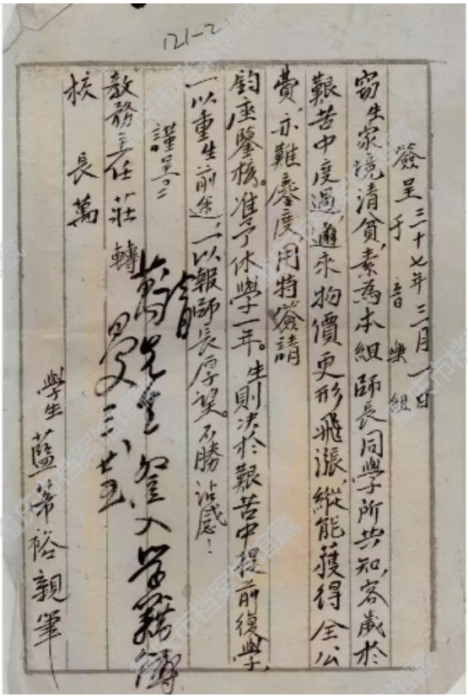 121-2
簽呈 三十七年三月一日
于音樂組
竊生家境清貧，素為本組師長同學所共知，客歲於
艱苦中度過，邇來物價更形飛漲，縱能獲得全公
費，亦難鏖度，用特簽請
鈞座鑒核。准予休學一年。生則決於艱苦中提前復學，
一以重生前途，一以報師長厚望。不勝沾感！
謹呈
教務主任莊 轉
校長萬
登入學籍簿
學生 藍蒂裕 親筆